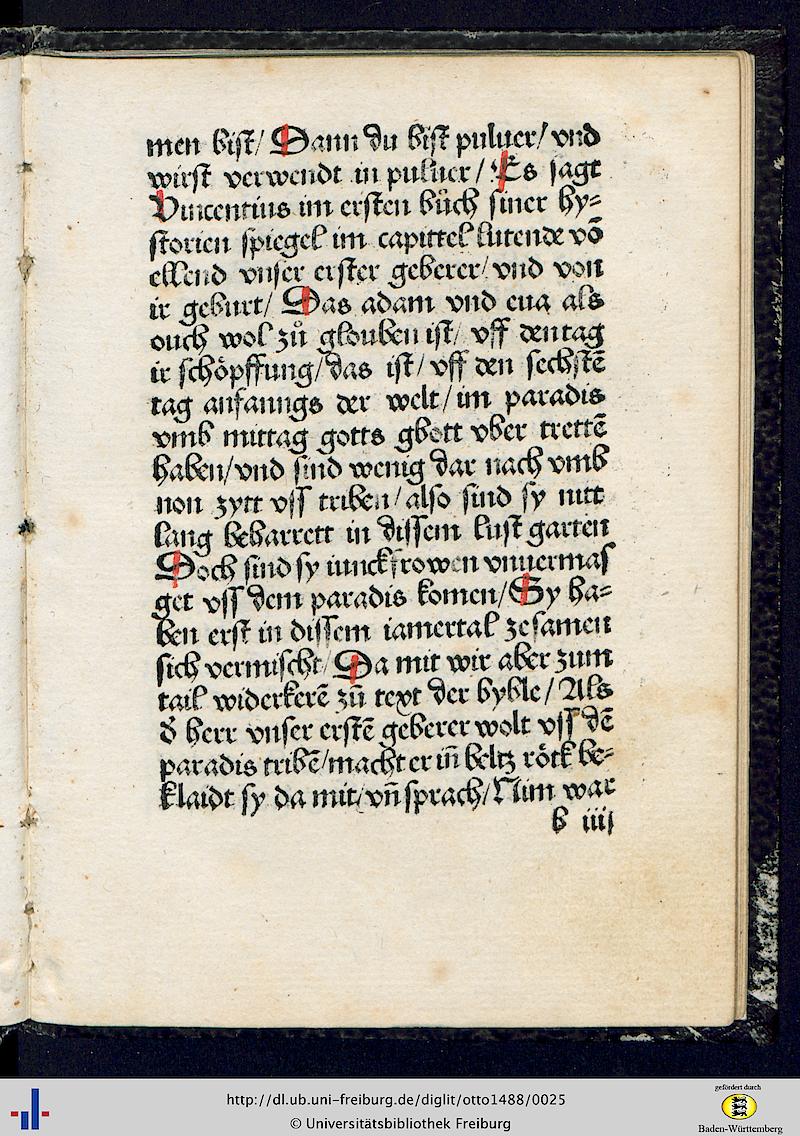 men bist/ Dann du bist puluer/ vnd
wirst verwendt in puluer/ Es sagt
Vincentius im ersten bůch siner hy⸗
storien spiegel im capittel lutende vō
ellend vnser erster geberer/ vnd von
ir geburt/ Das adam vnd eua als
ouch wol zů glouben ist/ vff den tag
ir schöpffung/ das ist/ vff den sechstē
tag anfanngs der welt/ im paradis
vmb mittag gotts gbott vber trettē
haben/ vnd sind wenig dar nach vmb
non zytt vss triben/ also sind sy nitt
lang beharrett in dissem lust garten
Doch sind sy iunckfrowen vnuermas
get vss dem paradis komen/ Sy ha⸗
ben erst in dissem iamertal zesamen
sich vermischt/ Da mit wir aber zum
tail widerkerē zů text der byble/ Als
d̄ herr vnser erstē geberer wolt vss dē
paradis tribē/ macht er in̄ beltz röck be⸗
klaidt sy da mit/ vn̄ sprach/ Nim war
b iiij
http://dl.ub.uni-freiburg.de/diglit/otto1488/0025
© Universitätsbibliothek Freiburg
gefördert durch
Baden-Württemberg